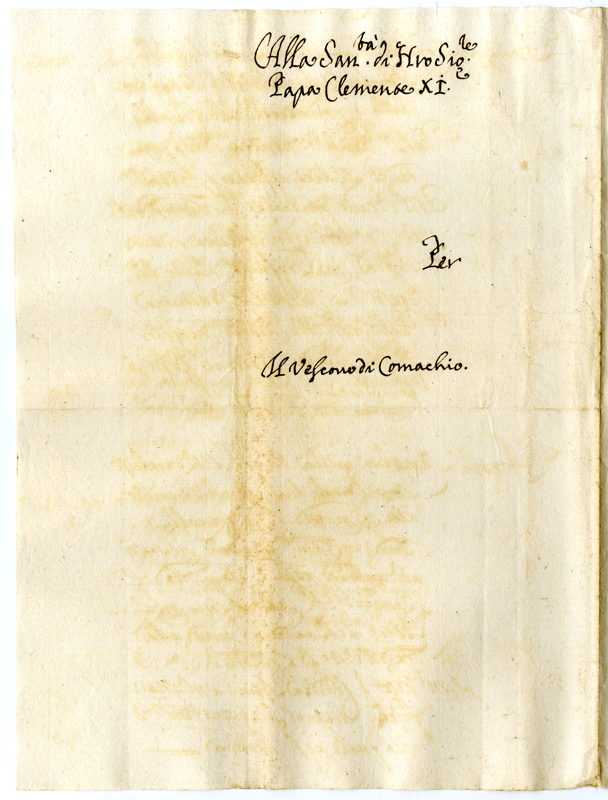 Alla San.tà di Nro Sig.re
Papa Clemente XI.
Per
Il Vescovo di Comachio.